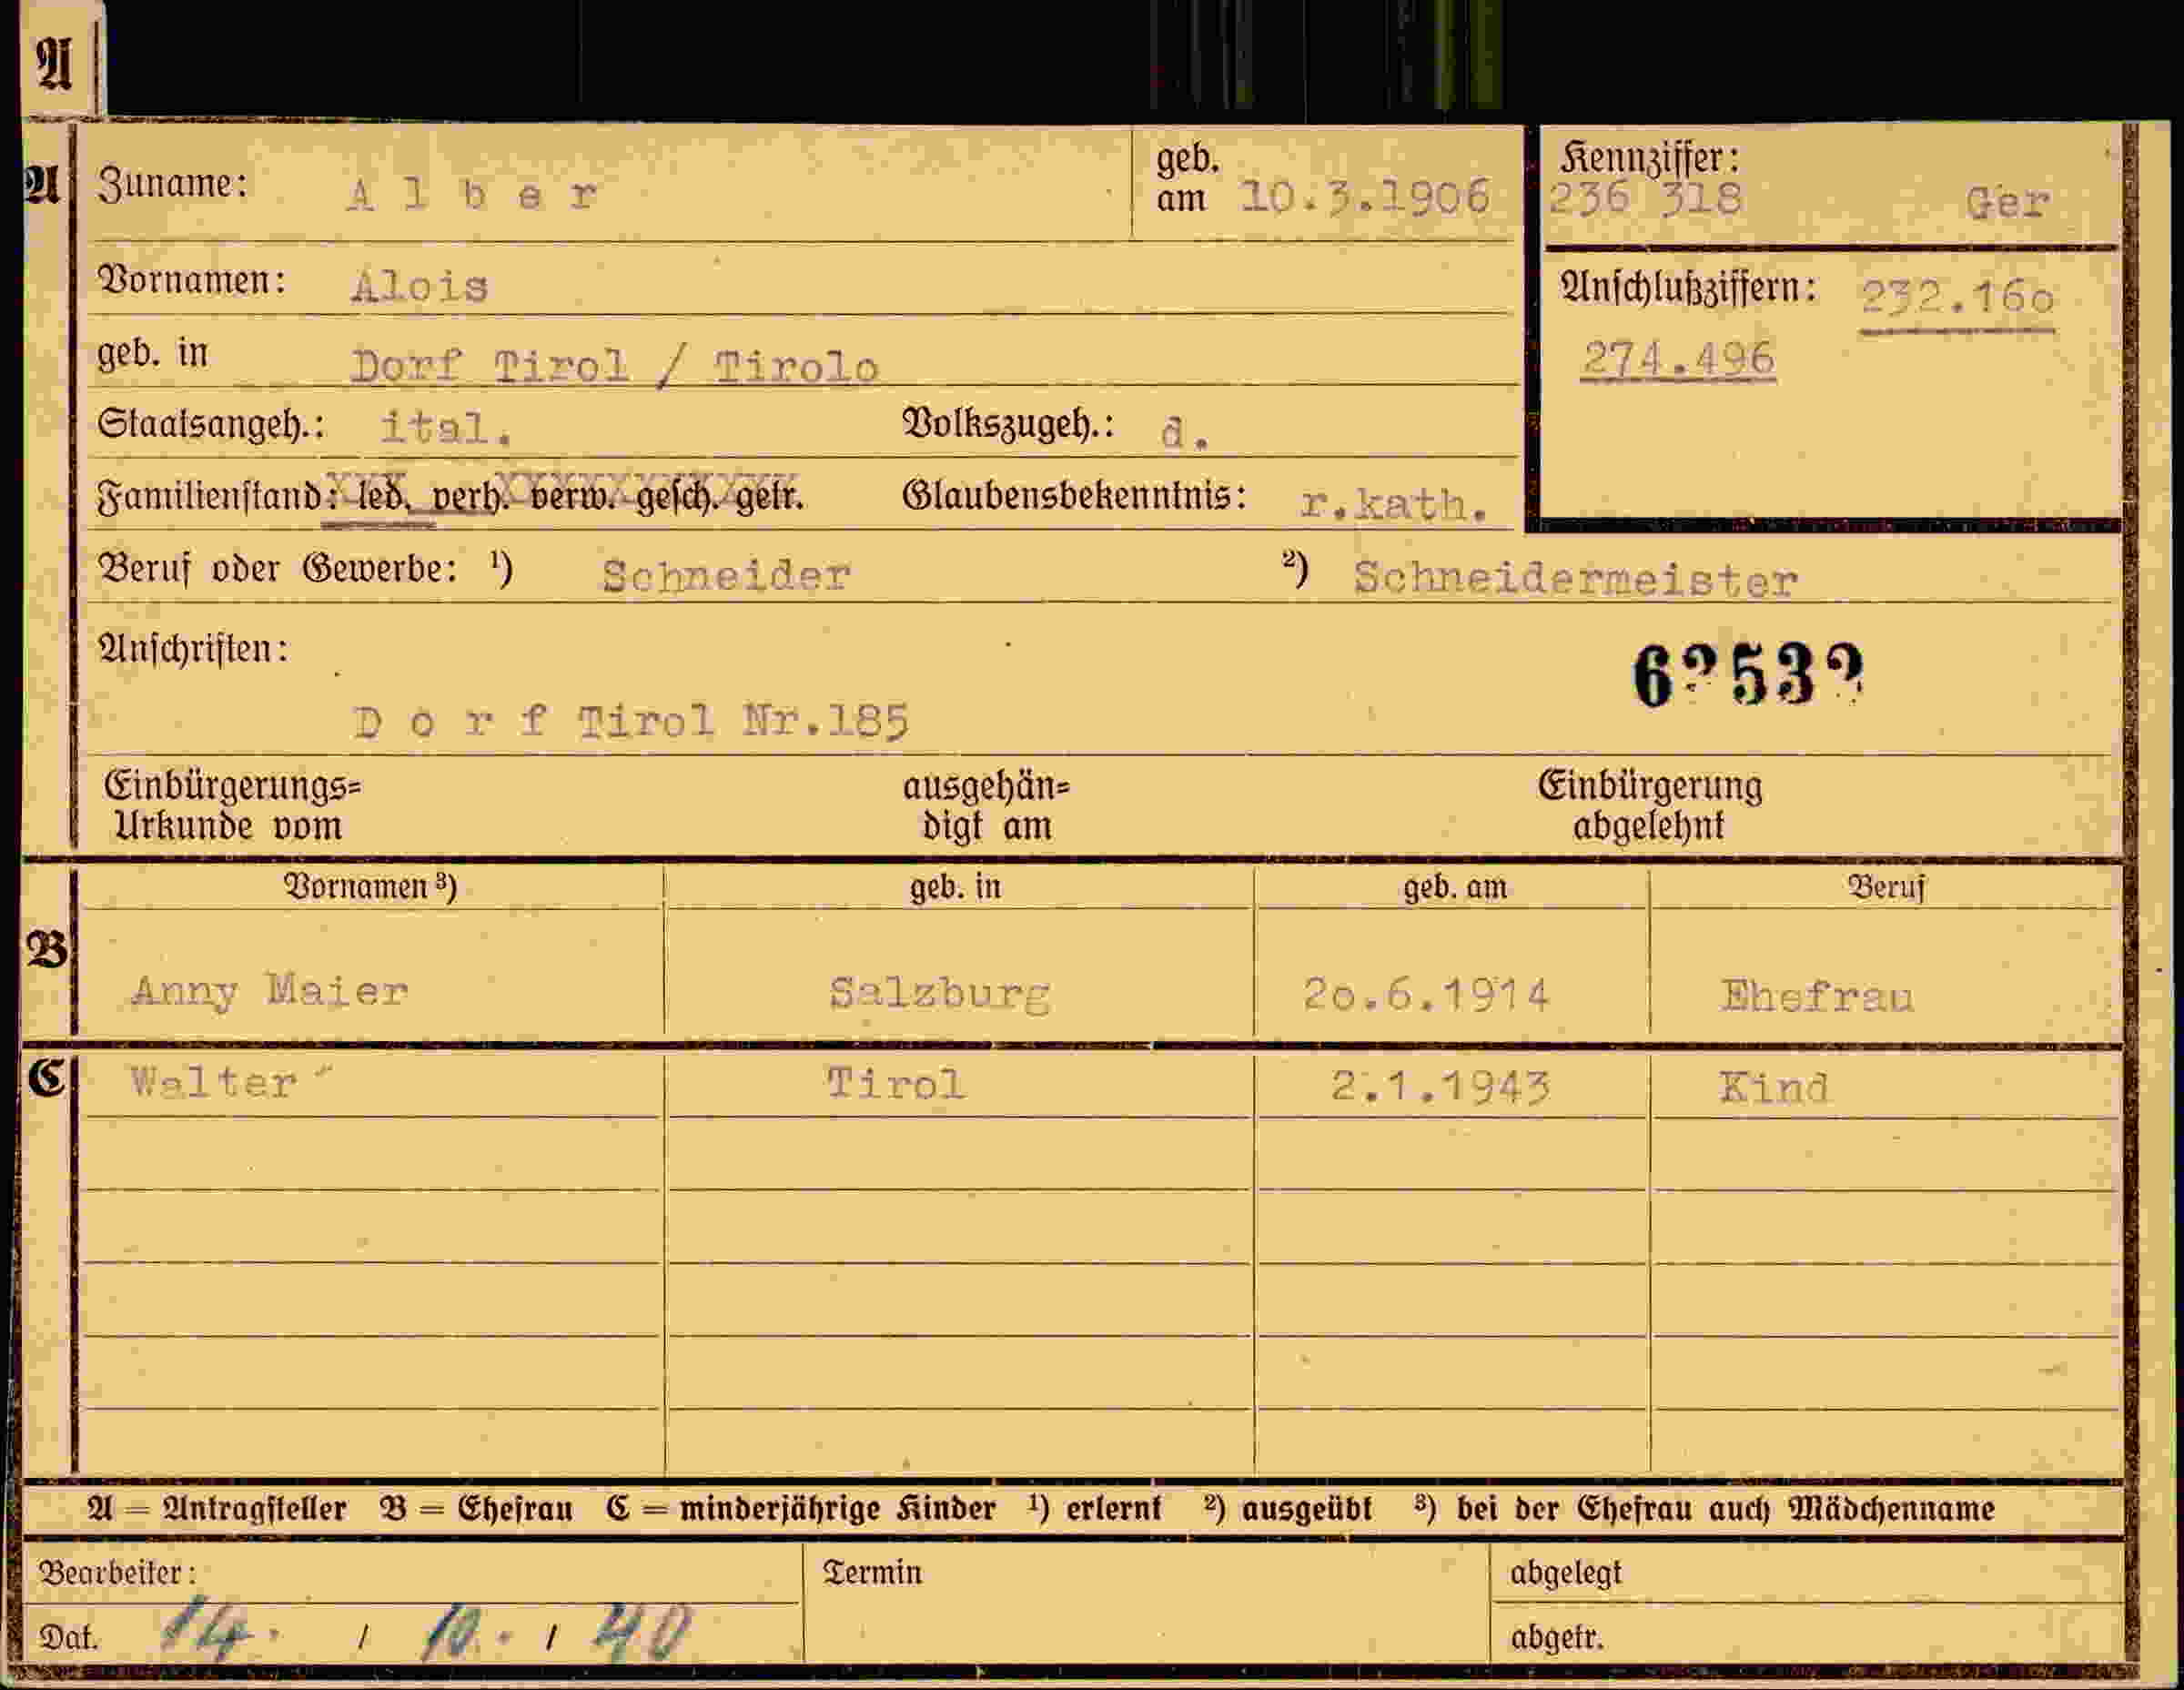 A
A Zuname: A l b e r geb. am 10.3.1906 Kennziffer: 236 318 Ger
Vornamen: Alois Anschlußziffern: 232.16o
geb. in Dorf Tirol / Tirolo 274.496
Staatsangeh.: ital. Volkszugeh.: d.
Familienstand: led. verh. verw. gesch. getr. Glaubensbekenntnis: r.kath.
Beruf oder Gewerbe: ¹) Schneider ²) Schneidermeister
Anschriften:
D o r f Tirol Nr.185
Einbürgerungs= ausgehän= Einbürgerung
Urkunde vom digt am abgelehnt
Vornamen ³) geb. in geb. am Beruf
B Anny Maier Salzburg 2o.6.1914 Ehefrau
C Walter Tirol 2.1.1943 Kind
A = Antragsteller B = Ehefrau C = minderjährige Kinder ¹) erlernt ²) ausgeübt ³) bei der Ehefrau auch Mädchenname
Bearbeiter: Termin abgelegt
Dat. 14. / 10. / 40 abgetr.